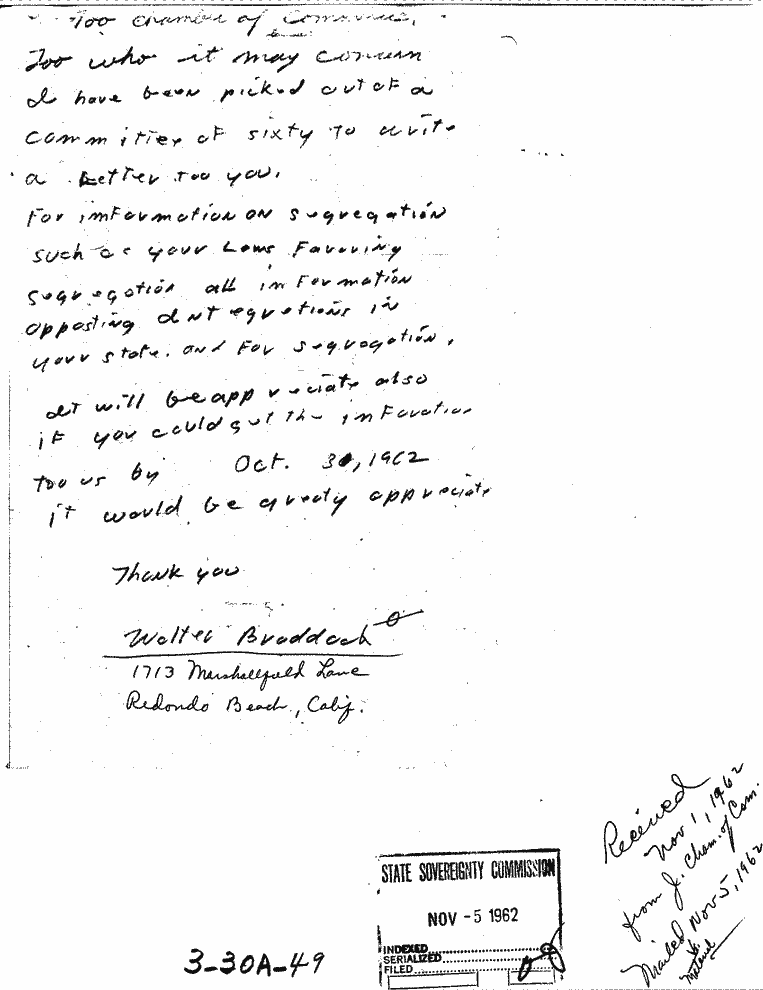 Too chamber of Commerce,
Too who it may concern
I have been picked out of a
committiey of sixty to write
a Letter too you.
For imformation on sugregation
such as your Laws Favoring
sugregation all imformation
oppasting Integrations in
your state. and For sugragation,
It will be appreciate also
if you could get the inforation
too us by Oct. 30, 1962
it would be greaty appreciate
Thank you
Walter Braddock
1713 Marshallfield Lane
Redondo Beach, Calif.
Received
Nov 1, 1962
from J. Cham. of Com.
Mailed Nov 5, 1962
material
STATE SOVEREIGNTY COMMISSION
NOV -5 1962
INDEXED
SERIALIZED
FILED
3-30A-49